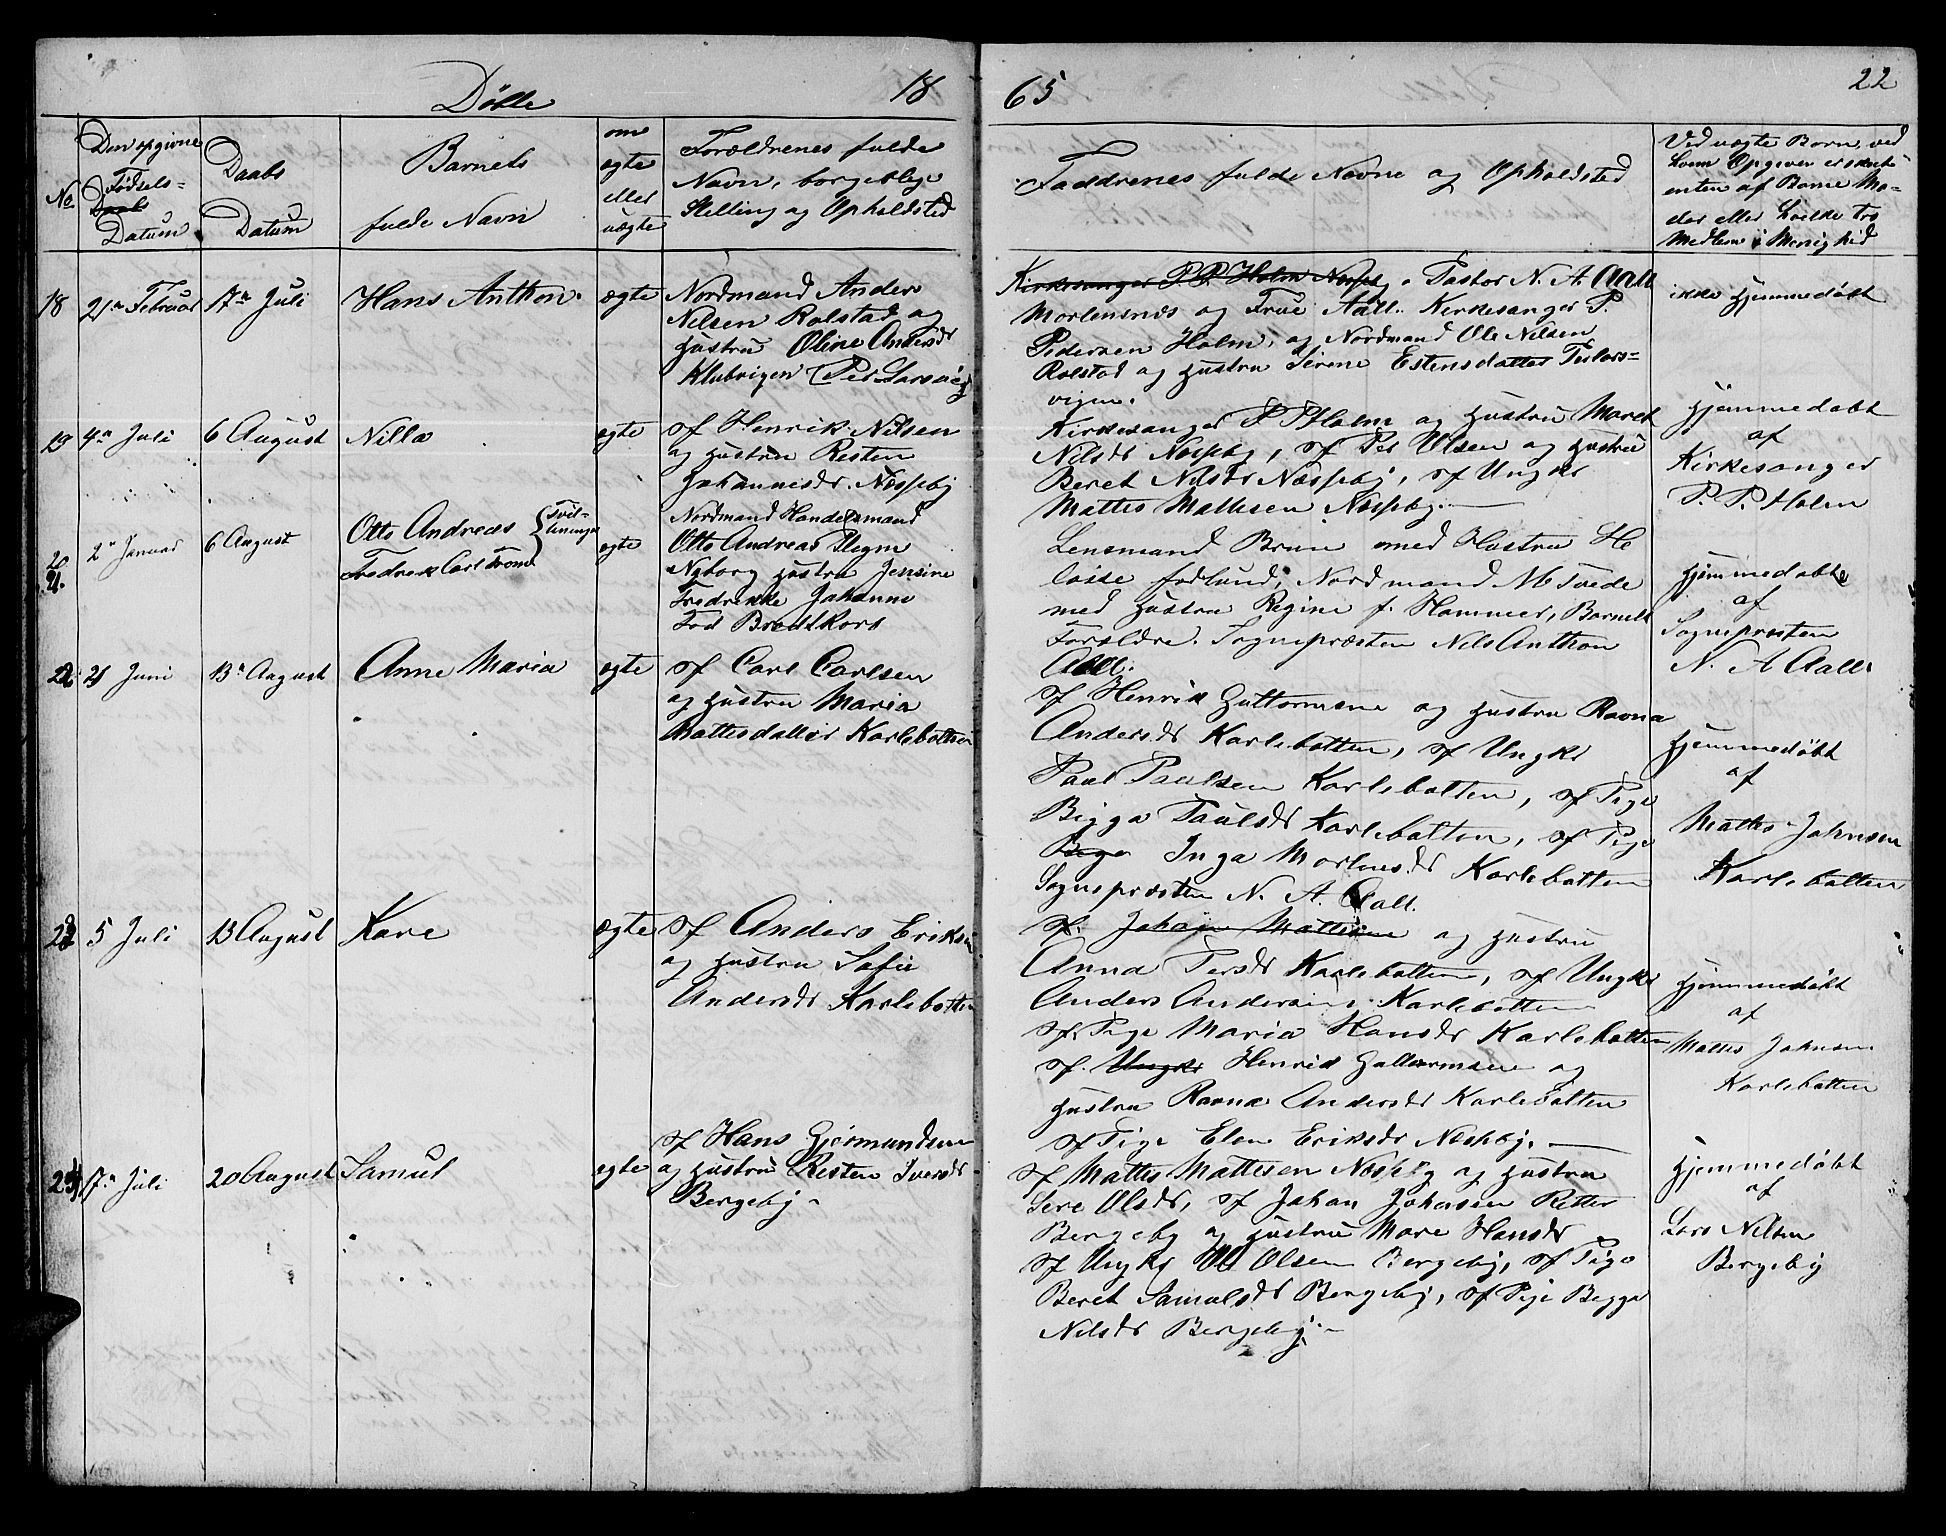 Døbte 18
65 22
No
Den opgivne Fødsels= Daabs Datum
Daabs Datum
Barnets fulde Navn
om ægte eller uægte
Forældrenes fulde Navn, borgerlige Stilling og Opholdsted
Faddrenes fulde Navne og Opholdsted
Ved uægte Børn, ved
hvem Opgiven er skut
enten af Barne Mo=
der eller hvilke tro
Medlem i Menighed
18 21de Februar 17de Juli Hans Anthon. ægte
Nordmand Anders
Nilsen Rolstad og
Hustru Oline Andersdr
Klubvigen
Kirkesanger P. P. Holm Næsseby. Pastor N. A. Aall
Mortensnæs og Frue Aall. Kirkesanger P.
Pedersen Holm, og Nordmand Ole Nilsen
Rolstad og Hustru Sirene Estensdatter
vigen.
ikke hjemmedøbt
19 4de Juli 6 August Nilla ægte
sf Henrik Nilsen
og Hustru Resten
Johannesdr. Næsseby
Kirkesanger P. P. Holm og Hustru Maret
Nilsdr Næsseby, sf Per Olsen og Hustru
Beret Nilsdr Næsseby, sf Ungkr
Mattes Mathisen Næsseby.
hjemmedøbt
af
Kirkesanger
P. P. Holm
20
21. 2de Januar 6 August
Otto Andreas { Tvil=
Fredrik Carl Trond { linger
ægte
Nordmand Handelsmand
Otto Andreas
Nyborg Hustru Jensine
Fredrikke Johanne
Fød Brodtkorb
Lensmand Brun med Hustru He
loise fød Lund, Nordmand M. Tvede
med Hustru Regine f. Hammer, Barnets
Forældre. Sognepræsten Nils Anthon
Aall.
hjemmedøbte
af
Sognepræsten
N. A Aall.
22 21 Juni 13de August Anne Maria ægte
sf Carl Carlsen
og Hustru Maria
Mattesdatter Karlebotten
sf Henrik Guttormsen og Hustru Ravna
Andersdr Karlebotten, sf Ungkr
Paul Paulsen Karlebotten, sf Pige
Bigga Paulsdr Karlebotten, sf Pige
Inga Mortensdr Karlebotten
Sognepræsten N. A. Aall.
hjemmedøbt
af
Mattes Johnsen
Karlebotten
23 5 Juli 13 August Kare ægte
sf Anders Eriksen
og Hustru Sofie
Andersdr Karlebotten
sf. Johan Mattisen og Hustru
Anna Persdr Karlebotten, sf Ungkr
Anders Andersen Karlebotten
sf. Pige Maria Hansdr Karlebotten
sf. Ungkr Henrik Guttormsen og
Hustru Ravna Andersdr Karlebotten
sf Pige Elen Eriksdr Næsseby.
hjemmedøbt
af
Mattes Johnsen
Karlebotten
24 7de Juli 20 August Samul ægte
sf Hans Gjermundsen
og Hustru Resten Iversdr
Bergeby
sf Mattis Mattesen Næsseby og Hustru
Sere Olsdr, sf Johan Johnsen Retter
Bergeby og Hustru Mare Hansdr
sf Ungkr Ole Olsen Bergeby, sf Pige
Beret Samulsdr Bergeby, sf Pige Bigga
Nilsdr Bergeby.
hjemmedøbt
af
Lars Nilsen
Bergeby